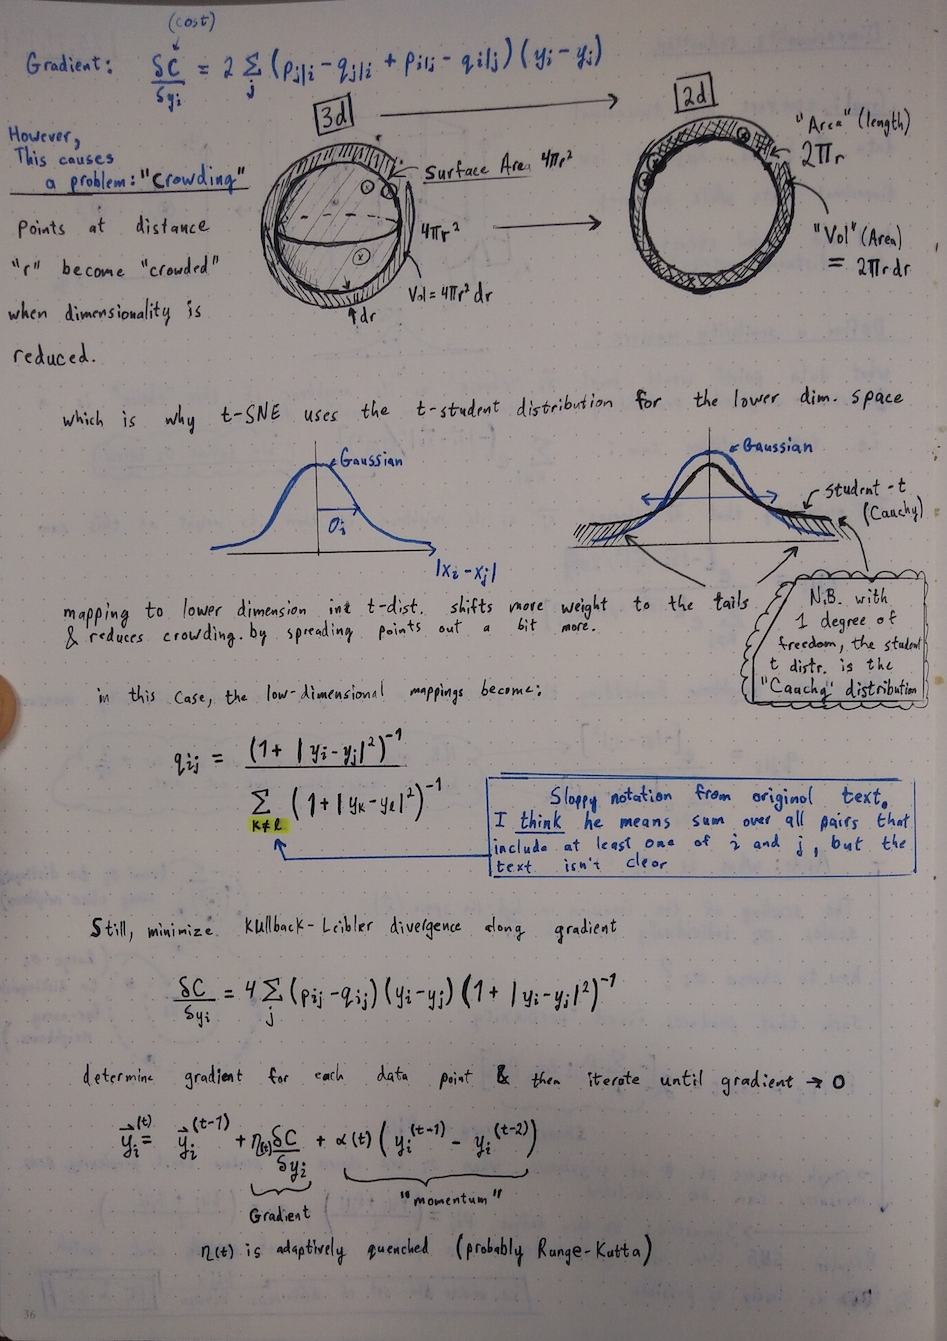 (cost)
Gradient: δC/δyᵢ = 2 Σⱼ (pⱼ|ᵢ - qⱼ|ᵢ + pᵢ|ⱼ - qᵢ|ⱼ) (yᵢ - yⱼ)
3d
2d
However,
This causes
a problem: "crowding"
Surface Area 4πr²
"Area" (length)
2πr
Points at distance
4πr²
"Vol" (Area)
= 2πr dr
"r" become "crowded"
Vol = 4πr² dr
when dimensionality is
dr
reduced.
which is why t-SNE uses the t-student distribution for the lower dim. space
Gaussian
Gaussian
σᵢ
student-t
(Cauchy)
|xᵢ - xⱼ|
mapping to lower dimension in t-dist. shifts more weight to the tails
& reduces crowding. by spreading points out a bit more.
N.B. with
1 degree of
freedom, the student
t distr. is the
"Cauchy" distribution
in this case, the low-dimensional mappings become:
qᵢⱼ = (1 + |yᵢ - yⱼ|²)⁻¹
Σ (1 + |yₖ - yₗ|²)⁻¹
k≠l
Sloppy notation from original text.
I think he means sum over all pairs that
include at least one of i and j, but the
text isn't clear
Still, minimize Kullback-Leibler divergence along gradient
δC/δyᵢ = 4 Σⱼ (pᵢⱼ - qᵢⱼ) (yᵢ - yⱼ) (1 + |yᵢ - yⱼ|²)⁻¹
determine gradient for each data point & then iterate until gradient → 0
yᵢ⁽ᵗ⁾ = yᵢ⁽ᵗ⁻¹⁾ + η(t) δC/δyᵢ + α(t) (yᵢ⁽ᵗ⁻¹⁾ - yᵢ⁽ᵗ⁻²⁾)
Gradient
"momentum"
η(t) is adaptively quenched (probably Runge-Kutta)
36